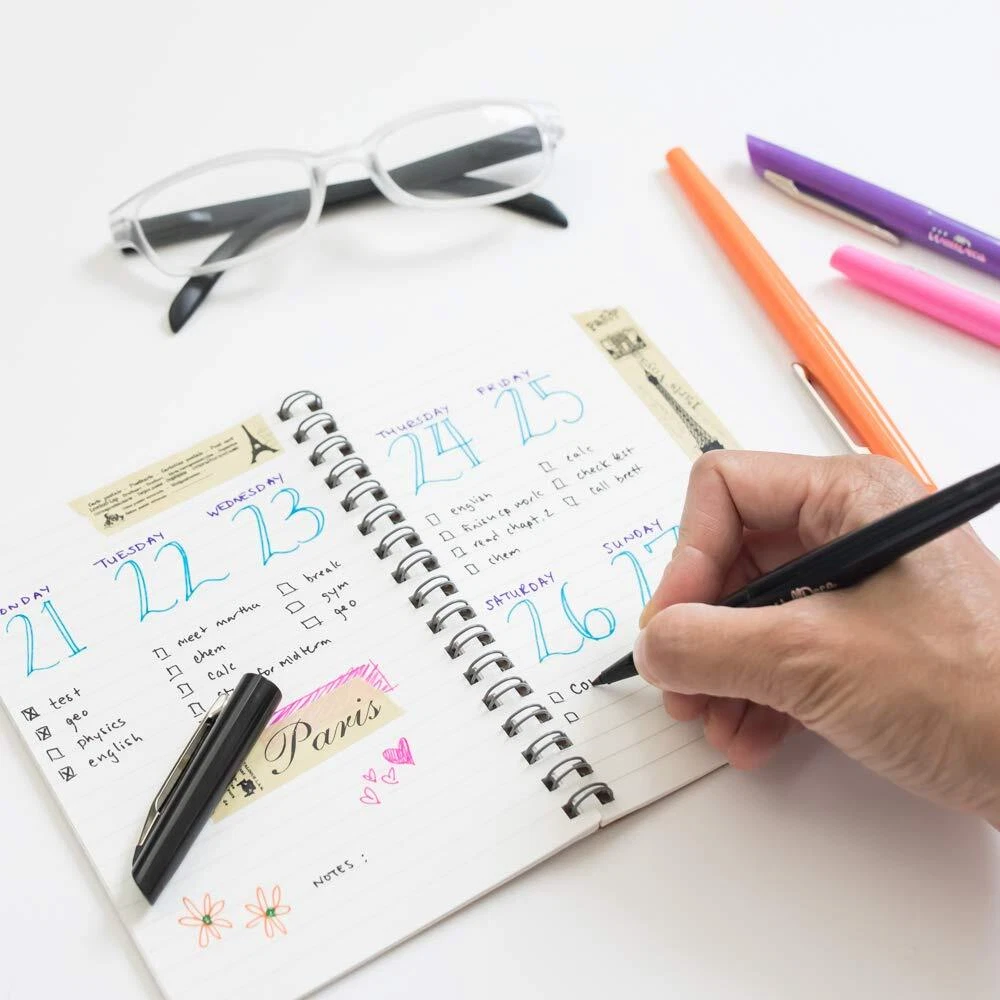 21
TUESDAY
22
WEDNESDAY
23
test
geo
physics
english
meet martha
chem
calc
for midterm
break
gym
geo
Paris
NOTES :
THURSDAY
24
FRIDAY
25
english
finish CP work
read chapt. 2
chem
calc
check test
call brett
SATURDAY
26
SUNDAY
Paris